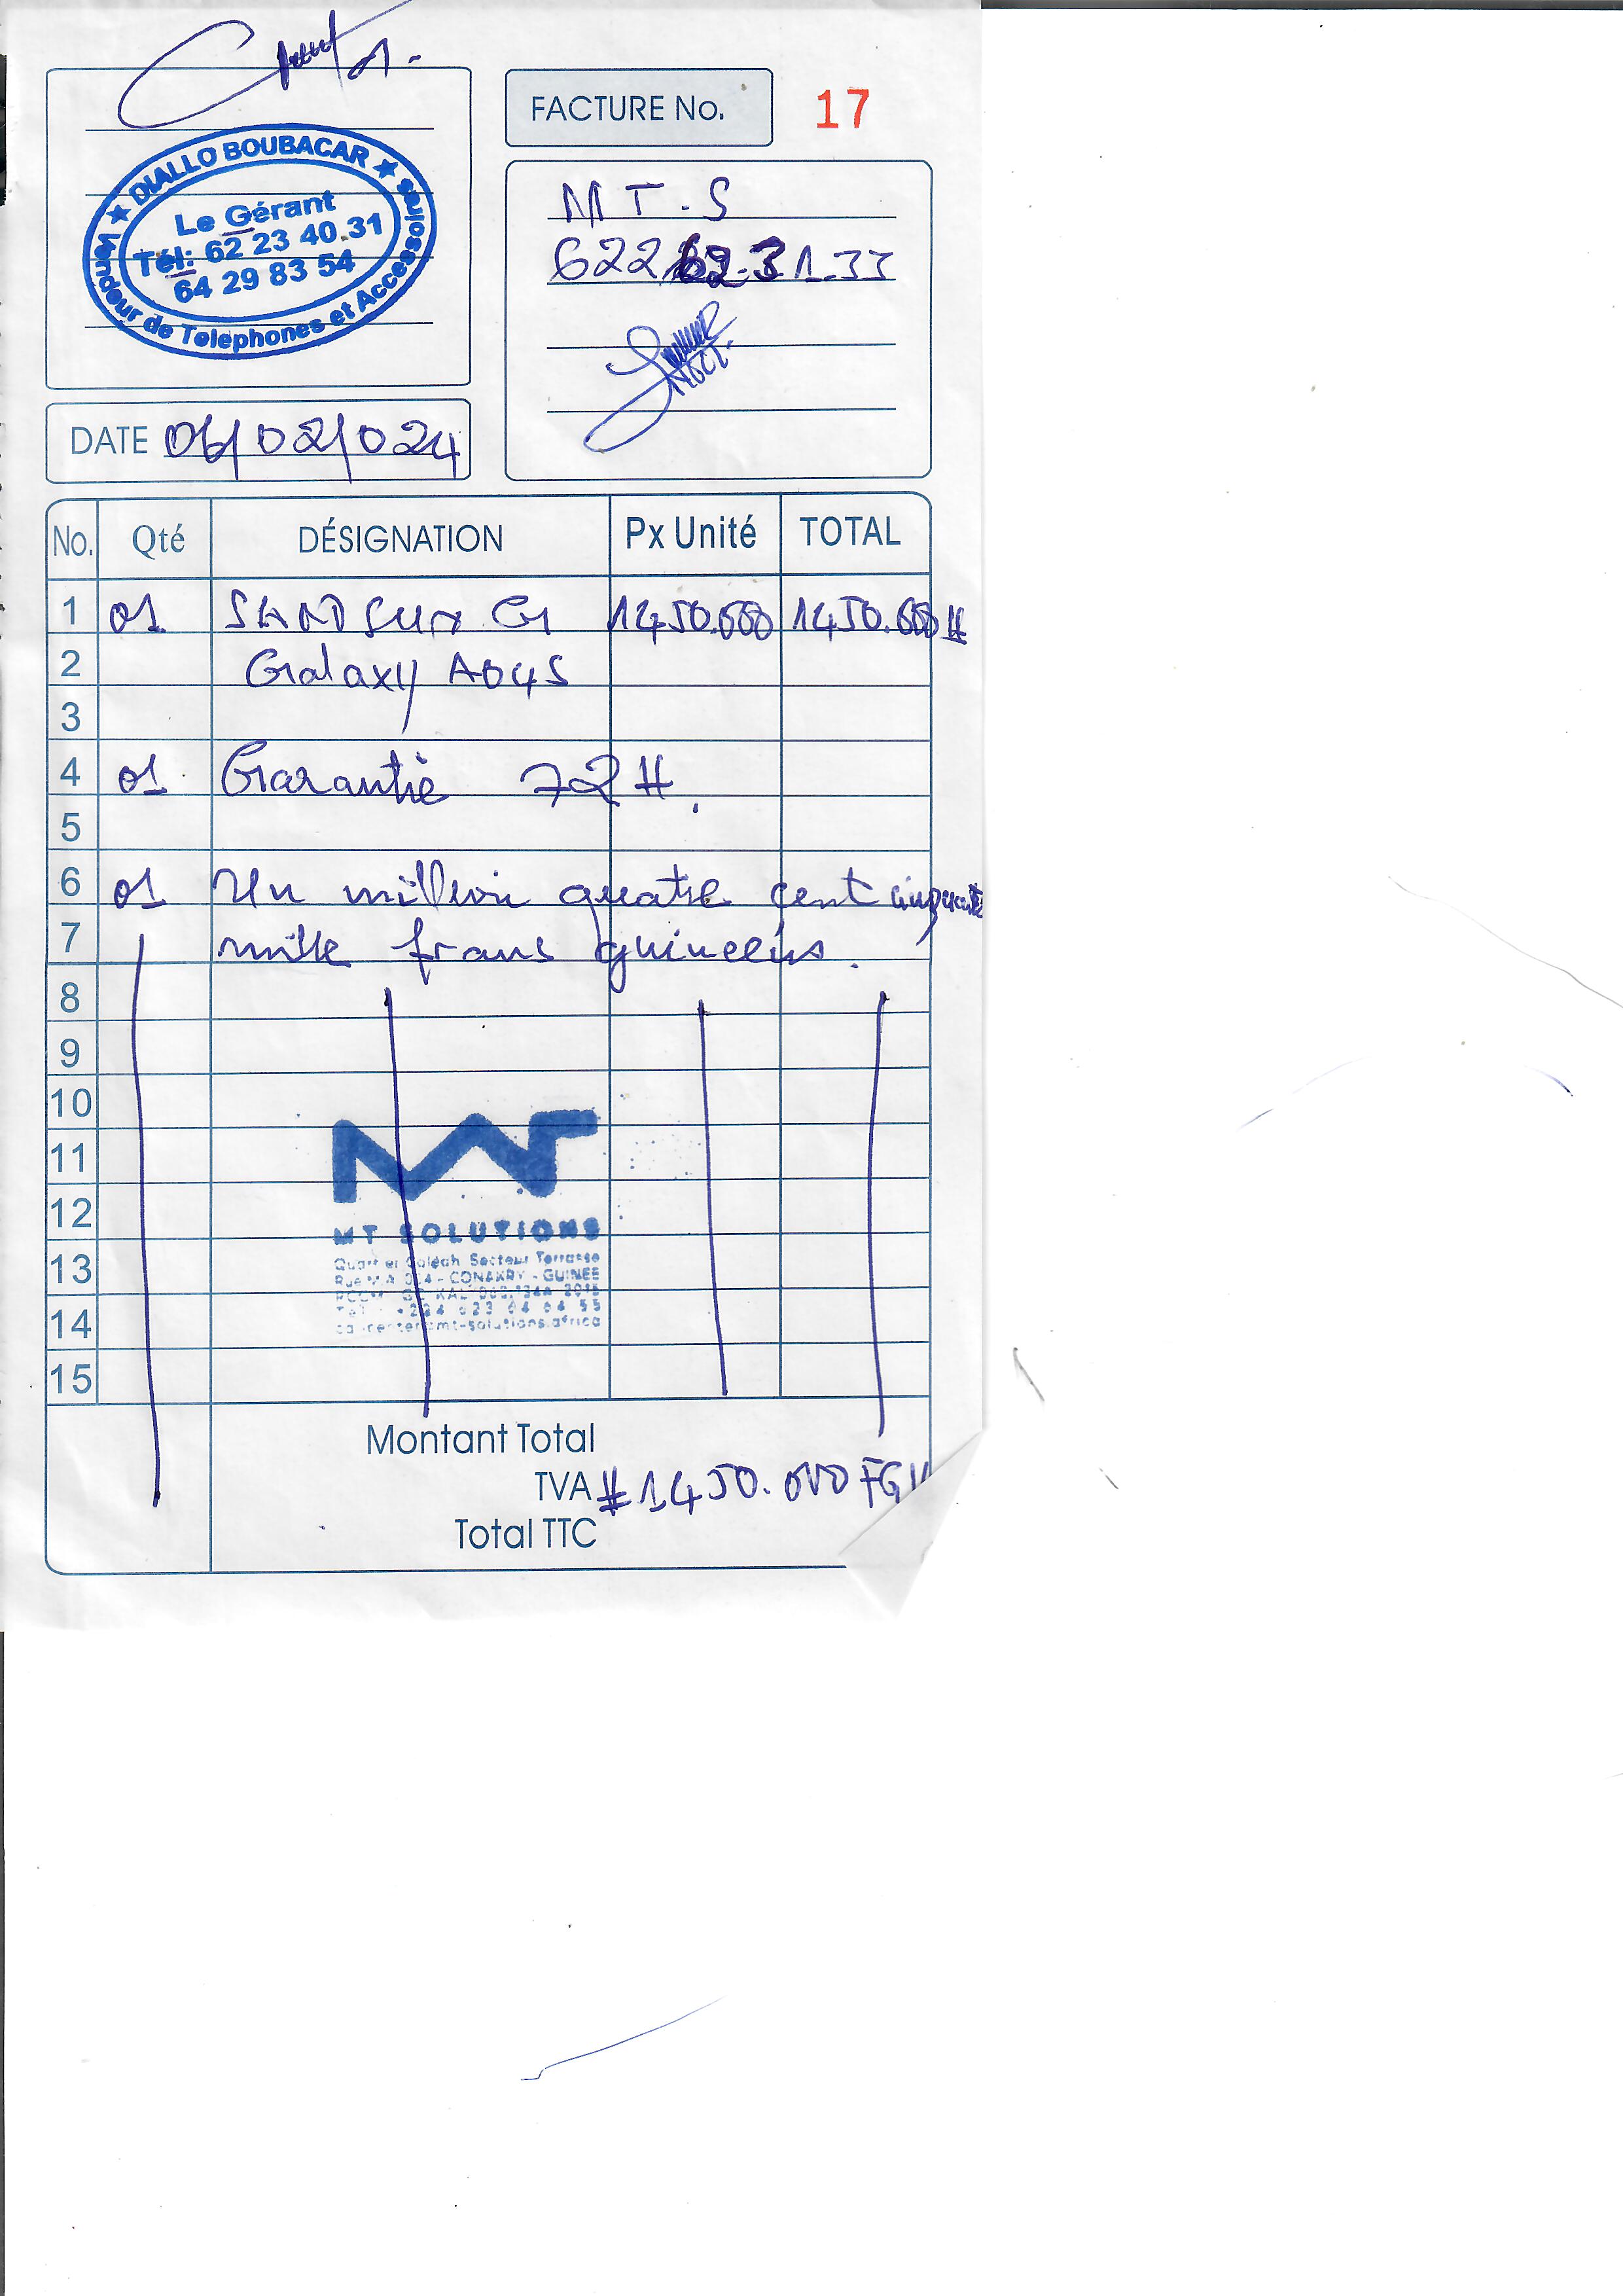 FACTURE No. 17
★ DIALLO BOUBACAR ★
Le Gérant
Tél: 62 23 40 31
64 29 83 54
Vendeur de Telephones et Accessoires
M T . S
622 62.31.33
DATE 06/02/024
No. Qté DÉSIGNATION Px Unité TOTAL
1 01 SAMSUNG 1450.000 1450.000 #
2 Galaxy A04S
3
4 01 Garantie 72H.
5
6 01 Un million quatre cent cinquante
7 mille francs guineens.
8
9
10
11
12
13
14
15
MT SOLUTIONS
Quartier Coléah Secteur Terrasse
Rue M A 024 - CONAKRY - GUINEE
Tel : +224 623 64 64 55
callcenter@mt-solutions.africa
Montant Total
TVA # 1450.000 FG #
Total TTC